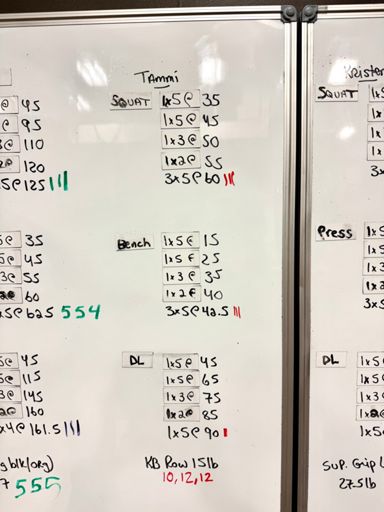 @ 45
@ 95
3@ 110
2@ 120
5@125 |||
5@ 35
5@ 45
3@ 55
2@ 60
x5@62.5 554
5@ 45
5@ 115
3@ 145
2@ 160
x4@161.5 |||
g blk(org)
7 555
TAmmi
SQUAT 1x5@ 35
1x5@ 45
1x3@ 50
1x2@ 55
3x5@60 |||
Bench 1x5@ 15
1x5@ 25
1x3@ 35
1x2@ 40
3x5@42.5 |||
DL 1x5@ 45
1x5@ 65
1x3@ 75
1x2@ 85
1x5@90 |
KB Row 15lb
10, 12, 12
Kristen
SQUAT 1x5
1x
1x
1x
3x
Press 1x5
1x5
1x3
1x2
3x5
DL 1x5
1x5
1x3
1x2
1x5
Sup. Grip L
27.5lb